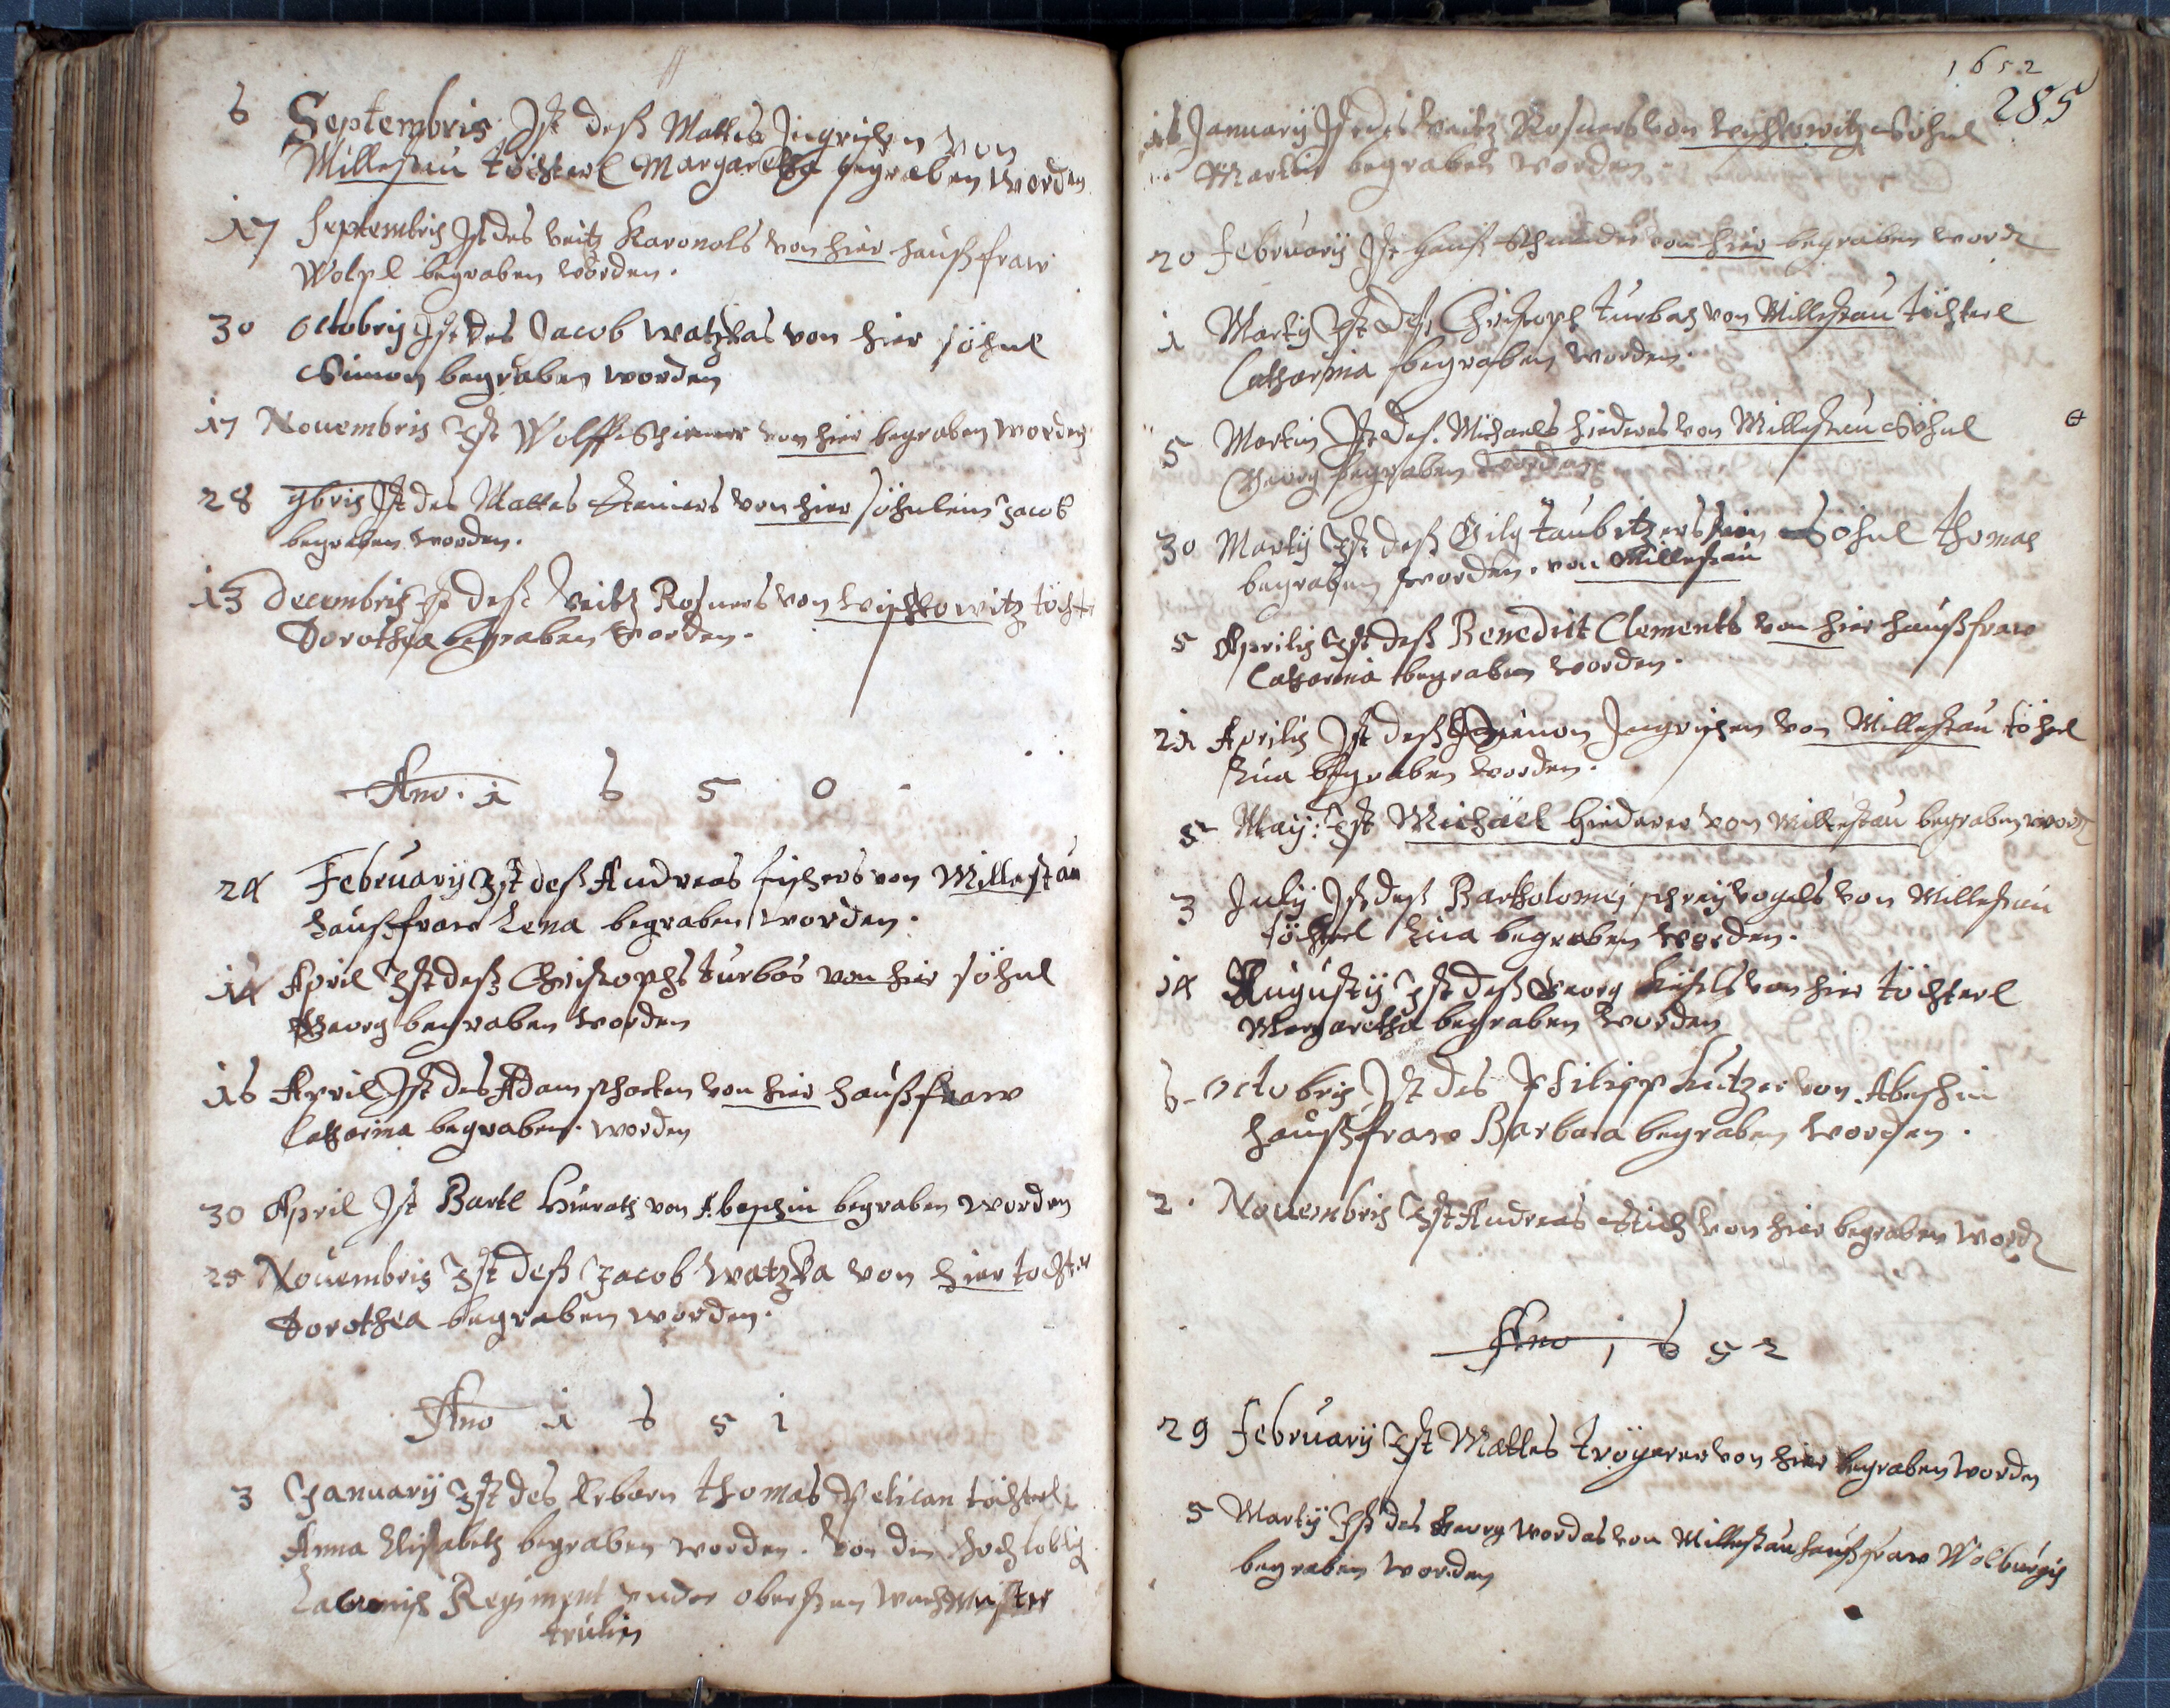 6 Septembris Ist deß Mattes Ingrischen von
Millestau töchterl Margaretha begraben worden
17 Septembris Ist des Veitz von hier haußfraw
Wolpl begraben worden.
30 octobris Ist des Jacob Watzkas von hier söhnl
Simon begraben worden
17 Nouembris Ist Wolff Schirmer von hier begraben worden
28 9bris Ist des Mattes Steiners von hier söhnlein Jacob
begraben worden.
13 Decembris Ist deß Veitz Rosners von Wischkowitz töcht
Dorothea begraben worden.
Ano. 1 6 5 0
24 February Ist deß Andreas Fischers von Millestau
haußfraw Lena begraben worden.
14 April Ist deß Christophs Turbas von hier söhnl
Georg begraben worden
16 April Ist des Adam von hier haußfraw
Catharina begraben worden
30 April Ist Bartl von Abaschin begraben worden
25 Nouembris Ist deß Jacob Watzka von hier tochter
Dorothea begraben worden.
Ano 1 6 5 1
3 January Ist des Erbarn Thomas Pelican töchterl
Anna Elisabeth begraben worden. Von den hochloblig
Regiment under obersten Wachmeister

1652
285
16 January Ist des Veitz Rosners von Wischkowitz Söhnl
Martin begraben worden.
20 February Ist Hanß Schmider von hier begraben word
1 Marty Ist deß Christoph Turbas von Millestau töchterl
Catharina begraben worden.
5 Martии Ist deß Michaels Hiederers von Millestau Söhnl
Georg begraben worden
30 Marty Ist deß Gilg Taubitzers sein Söhnl Thomas
begraben worden. von Millestau
5 Aprilis Ist deß Benedict Clements von hier haußfraw
Catharina begraben worden.
21 Aprilis Ist deß Simon Ingrischen von Millestau töchterl
Eua begraben worden.
5 May: Ist Michäel Hiederer von Millestau begraben word
3 July Ist deß Bartholomej schreyvogels von Millestau
töchterl Eua begraben worden.
14 Augusty Ist deß Georg von hier töchterl
Margaretha begraben worden
6. octobris Ist des Philipp Lutzer von Abaschin
haußfraw Barbara begraben worden.
2. Nouembris Ist Andreas Stich von hier begraben word
Ano 1 6 5 2
29 February Ist Mattes Tröyerer von hier begraben worden
5 Marty Ist des Georg Wordas von Millestau haußfraw Wolburgis
begraben worden